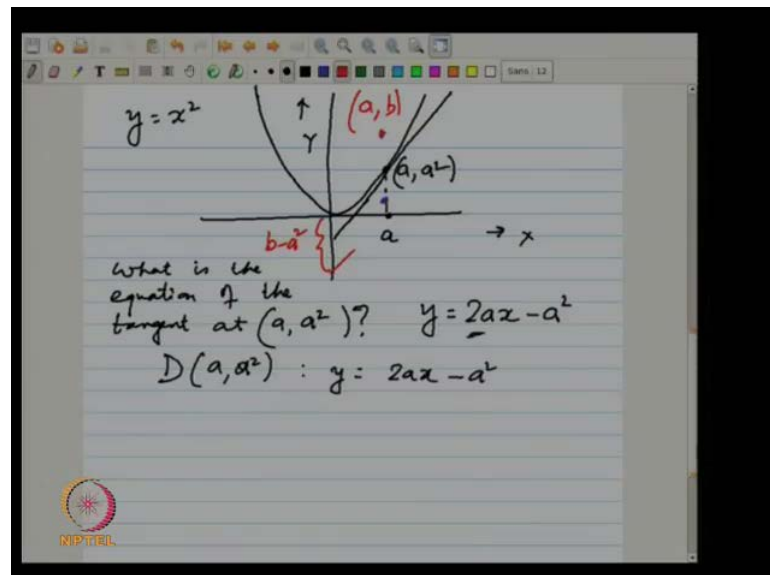 Sans 12
y = x²
↑
Y
(a, b)
(a, a²)
b-a²
a
→ x
what is the
equation of the
tangent at (a, a²)? y = 2ax - a²
D(a, a²) : y = 2ax - a²
NPTEL